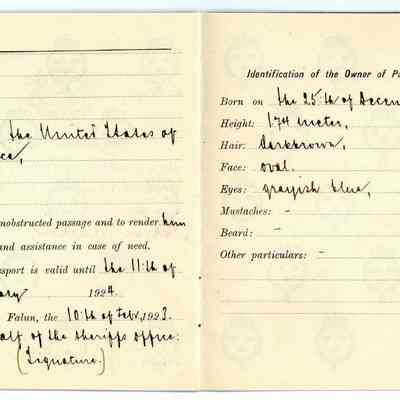 the United States of
ca,
nobstructed passage and to render him
and assistance in case of need.
sport is valid until the 11:th of
ary 1924.
Falun, the 10:th of Febr. 1923.
alf of the sheriffs office:
(Signature.)
Identification of the Owner of Pa
Born on the 25:th of Decem
Height: 174 meter,
Hair: Darkbrown,
Face: oval.
Eyes: grayish blue,
Mustaches: -
Beard: -
Other particulars: -